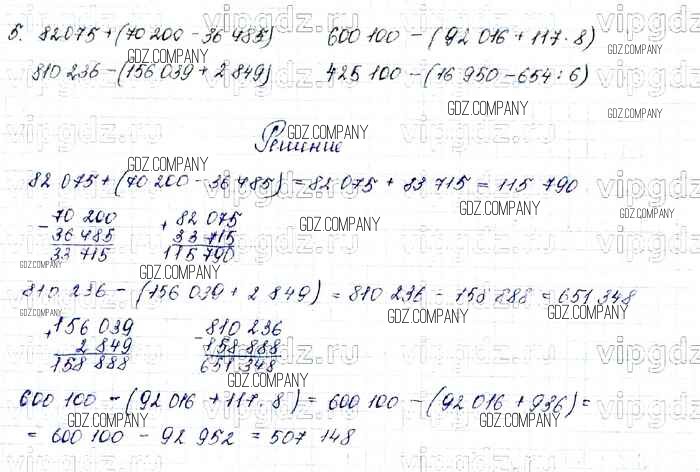 5. 82075+(70 200-36 485) 600 100-(92 016+117·8)
810 236-(156 039+2 849) 425 100-(16 950-654:6)
Решение
82 075+(70 200-36 485)=82 075+33 715=115 790
-70 200 +82 075
36 485 33 715
33 715 115 790
810 236-(156 039+2 849)=810 236-158 888=651 348
+156 039 -810 236
2 849 158 888
158 888 651 348
600 100-(92 016+117·8)=600 100-(92 016+936)=
=600 100-92 952=507 148